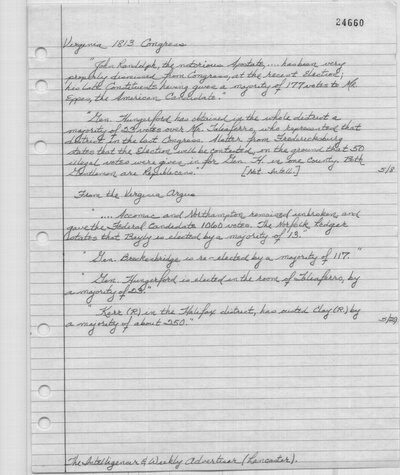 24660
Virginia 1813 Congress
"John Randolph, the notorious Apostate, .... has been very
properly dismissed from Congress, at the recent Election,
his late Constituents having given a majority of 177 votes to Mr.
Eppes, the American Candidate."
"Gen. Hungerford has obtained in the whole district a
majority of 23 votes over Mr. Taliaferro, who represented that
district in the last Congress. A letter from Fredericksburg
states that the Election will be contested, on the ground that 50
illegal votes were given in for Gen. H. in one County. Both
Gentlemen are Republicans." [Nat. Intell.] 5/8
From the Virginia Argus
".... Accomac and Northampton remained unbroken and
gave the Federal Candidate 1060 votes. The Norfolk Ledger
states that Bayly is elected by a majority of 13."
"Gen. Breckenridge is re-elected by a majority of 117."
"Gen. Hungerford is elected in the room of Taliaferro, by
a majority of 23."
"Kerr (R) in the Halifax district, has ousted Clay (R) by
a majority of about 250." 5/29
The Intelligencer & Weekly Advertiser (Lancaster).